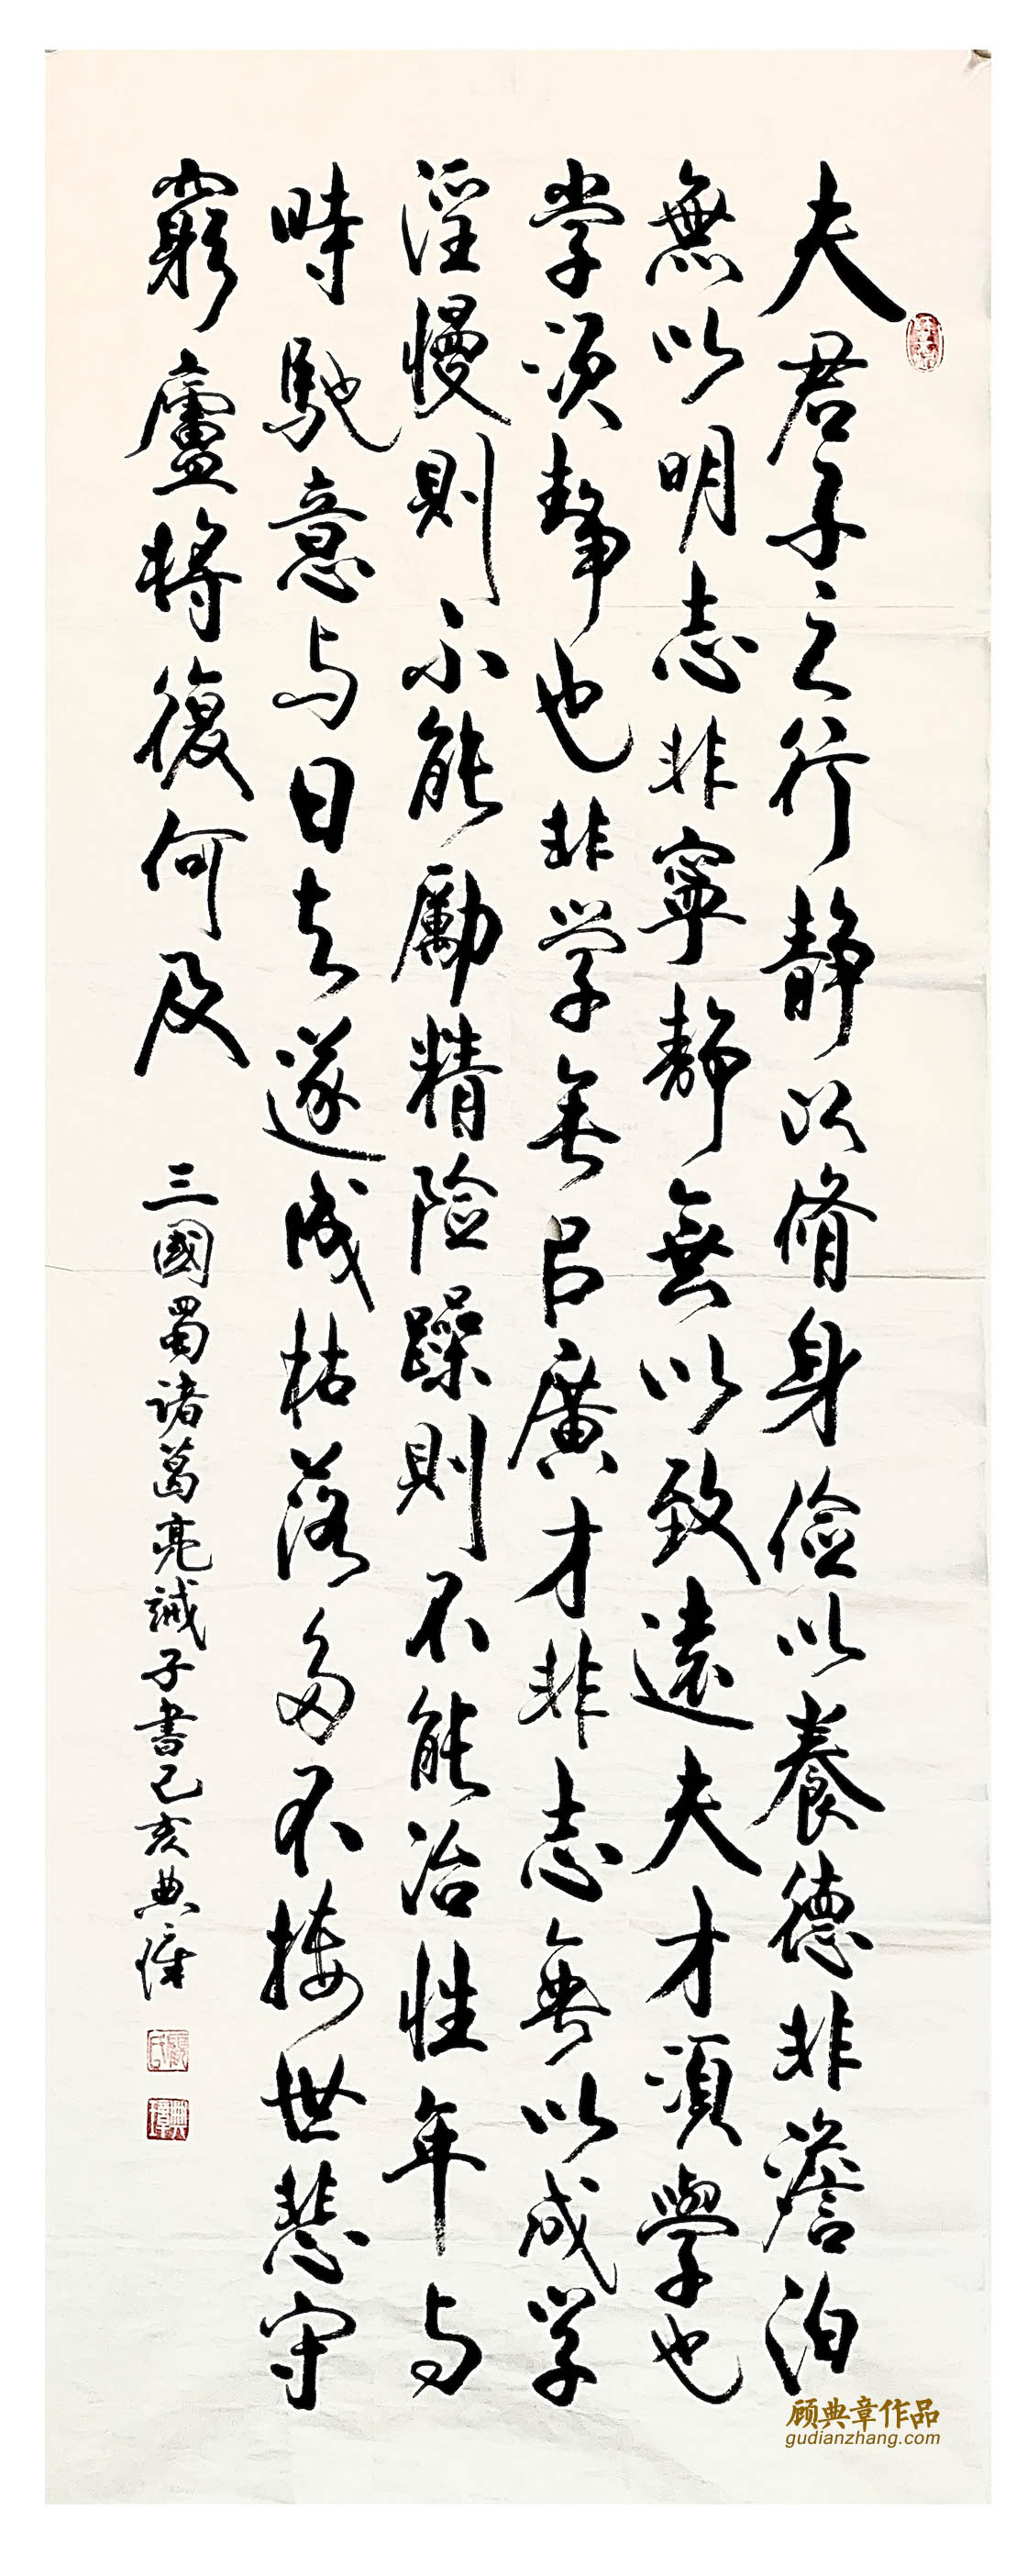 夫君子之行静以脩身俭以養德非澹泊
無以明志非寧静無以致遠夫才須學也
学须静也非学無㠯廣才非志無以成学
淫慢則不能勵精险躁則不能冶性年与
時馳意与日去遂成枯落多不接世悲守
窮廬將復何及
三國蜀诸葛亮誡子書己亥典璋
顾典章作品
gudianzhang.com